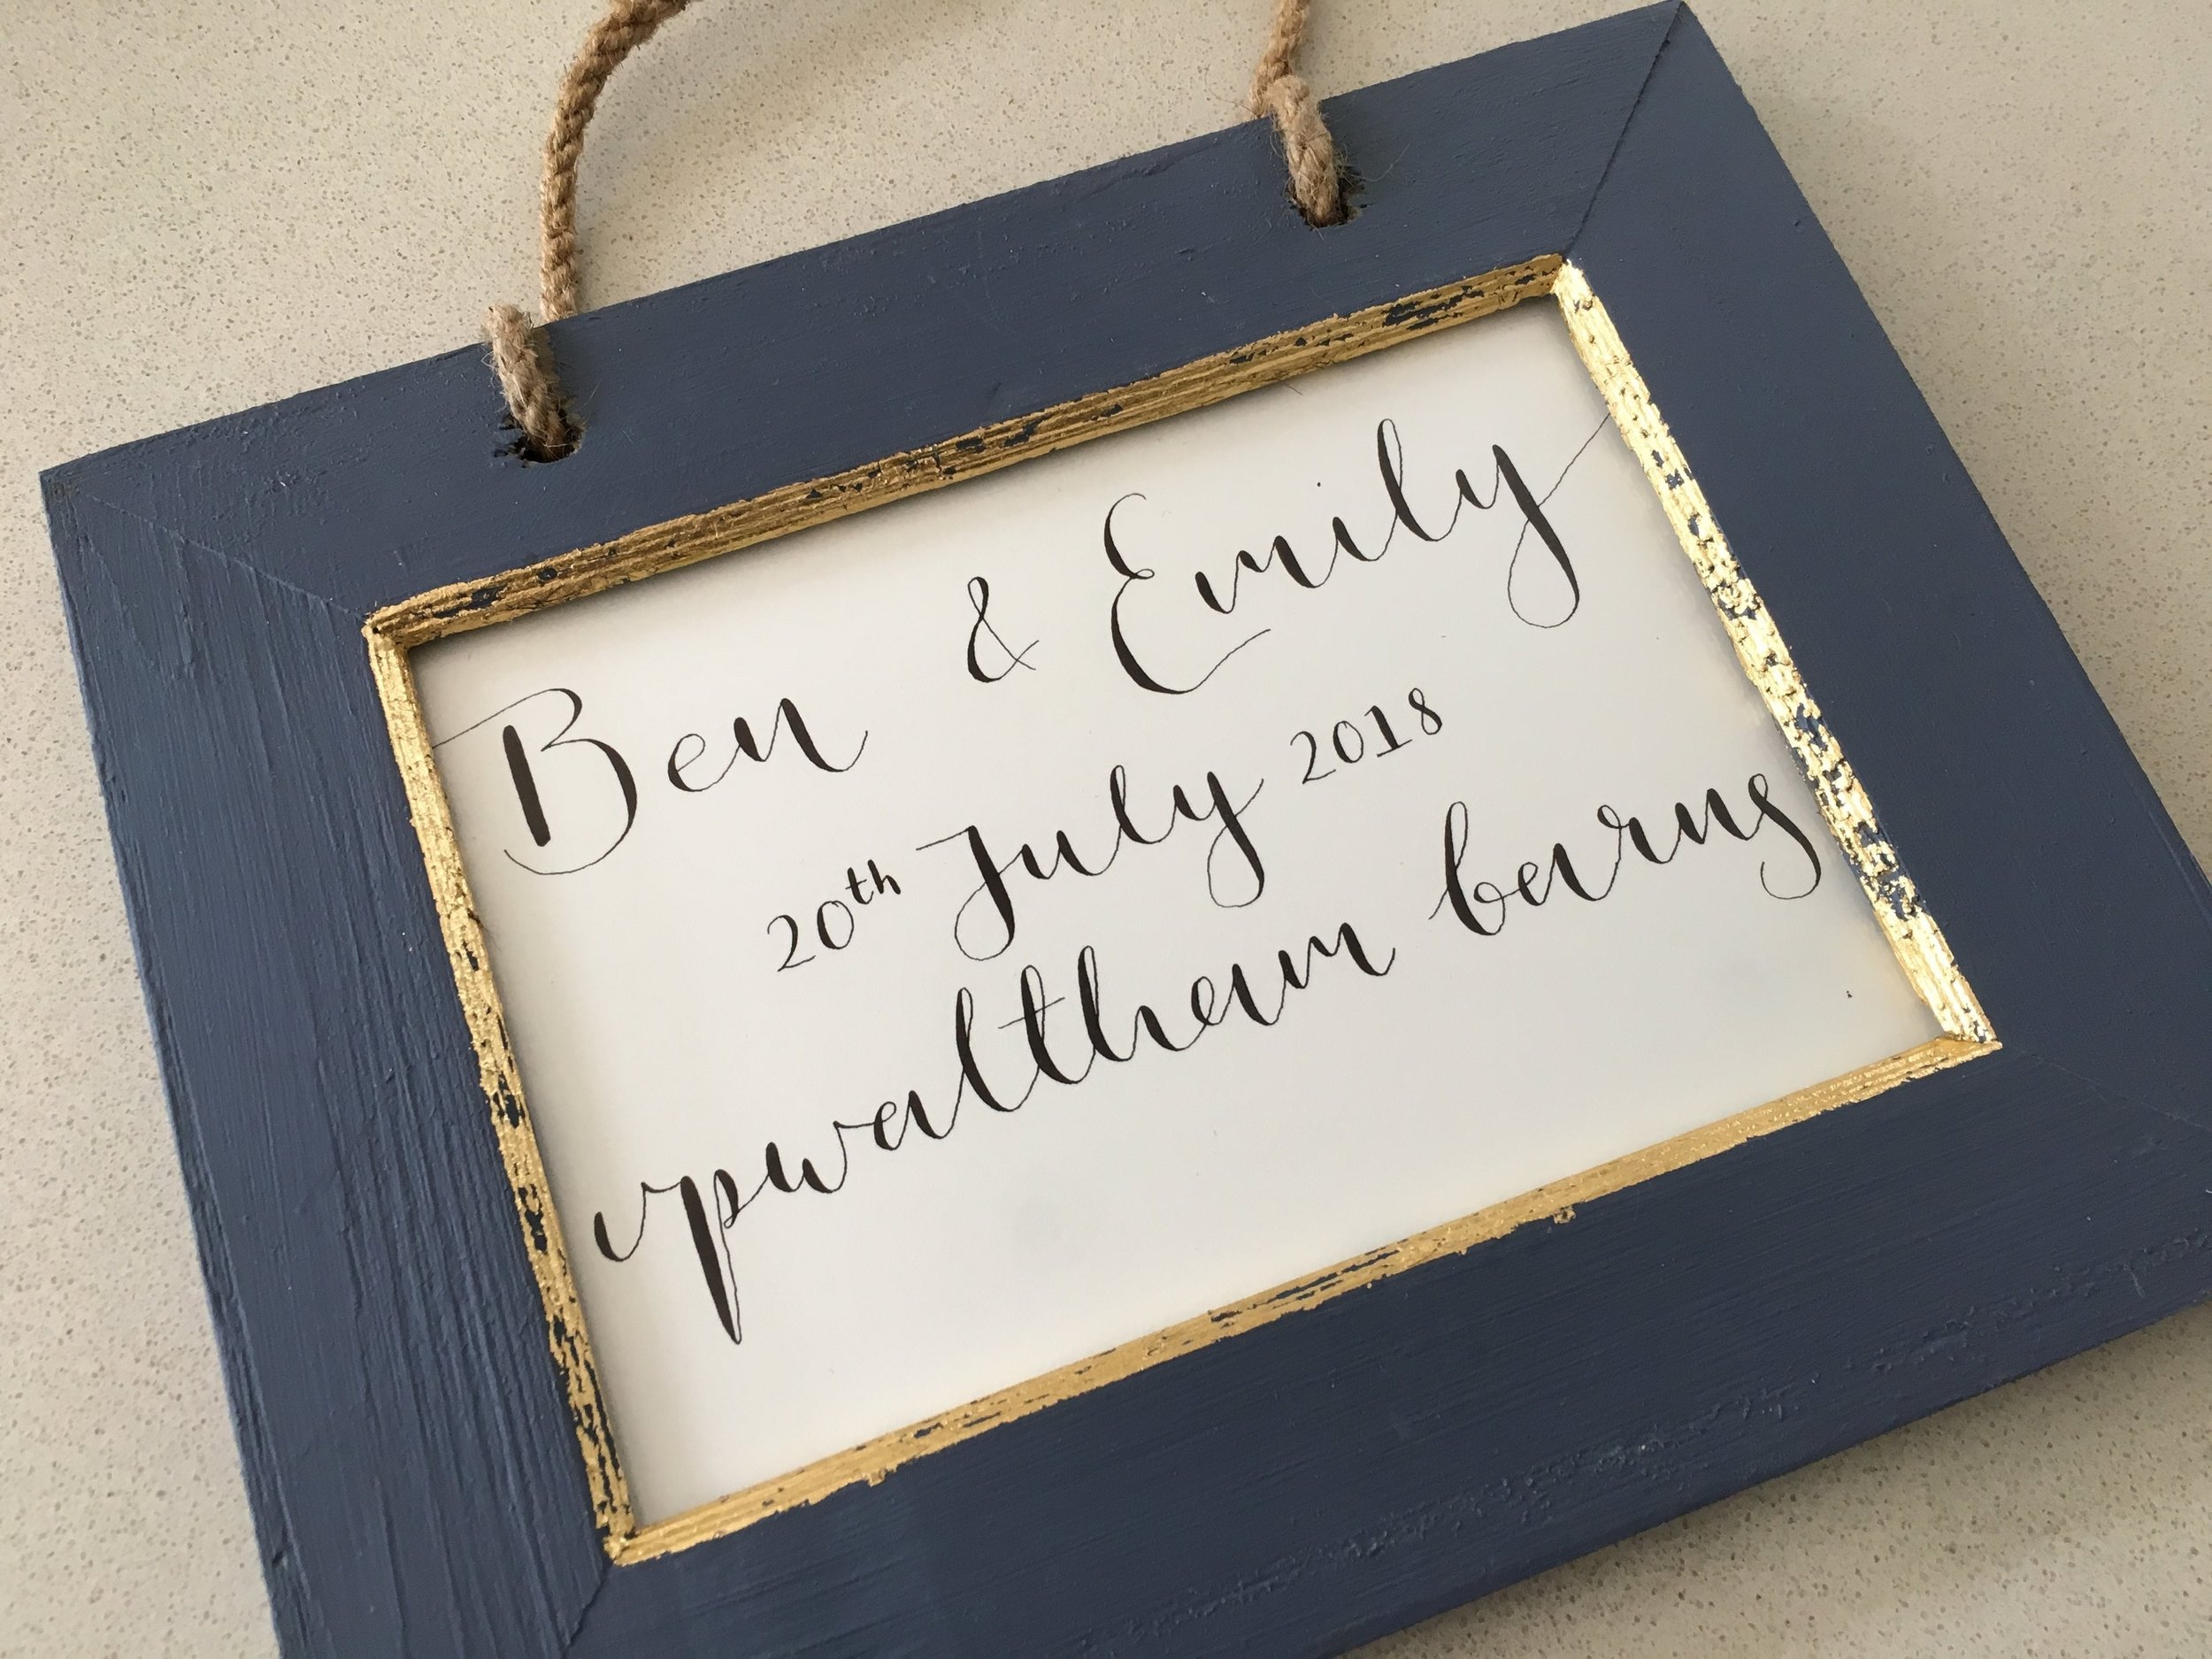 Ben & Emily
20th July 2018
upwaltham barns